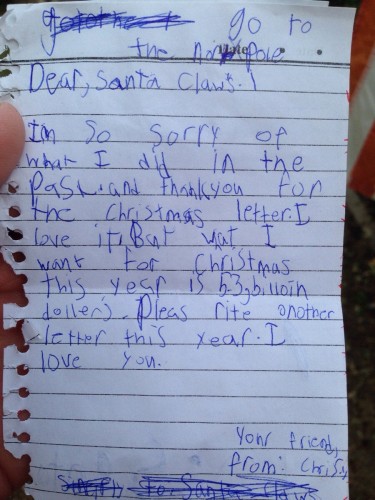 go to
the north pole
Dear, Santa Claws.!
Im so sorry of
what I did in the
Past. and thankyou for
the Christmas letter. I
love it, But wat I
want for Christmas
this year is
dollers. Pleas rite another
letter this year. I
love you.
Your friend,
from: Chris